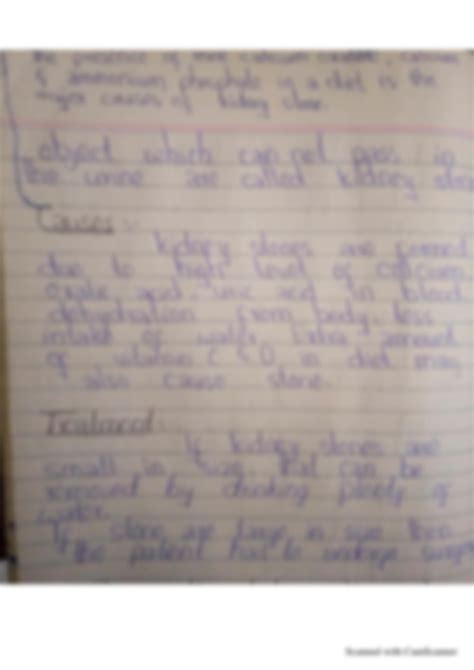 the presence of calcium oxalate, calcium
& ammonium phosphate in a diet is the
major causes of kidney stone.
object which can not pass in
the urine are called kidney
Causes :-
kidney stones are formed
due to high level of calcium
acid, uric acid in blood
dehydration from body, less
intake of water. Extra amount
of vitamin C & D in diet may
also cause stone.
If kidney stones are
small in size that can be
removed by drinking plenty of
water.
If stone are large in size then
the patient has to undergo
Scanned with CamScanner